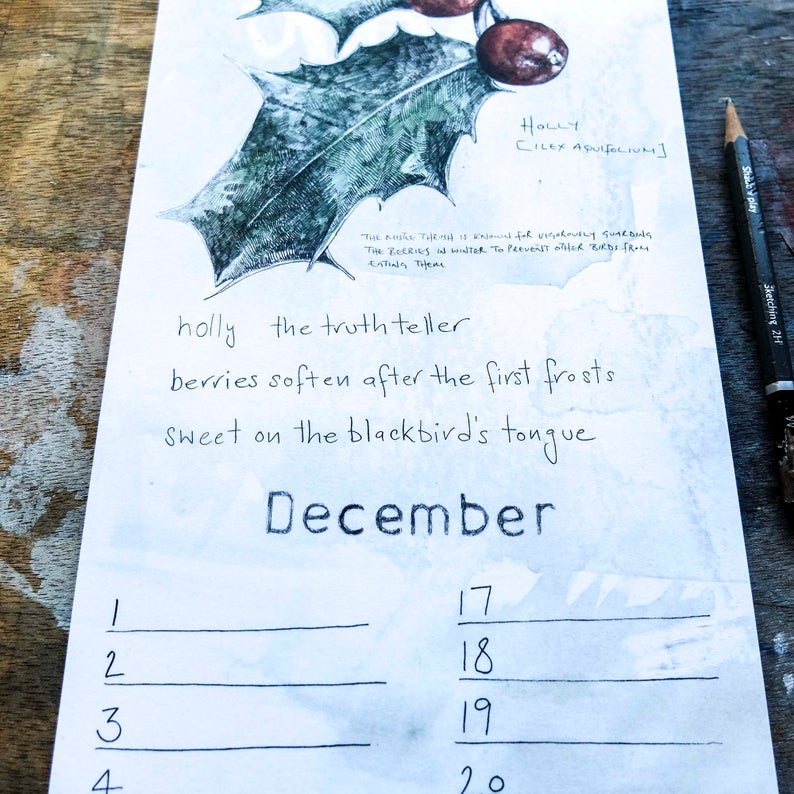 HOLLY
[ILEX AQUIFOLIUM]
THE MISTLE THRUSH IS KNOWN FOR VIGOROUSLY GUARDING
THE BERRIES IN WINTER TO PREVENT OTHER BIRDS FROM
EATING THEM
holly the truth teller
berries soften after the first frosts
sweet on the blackbird's tongue
December
1
2
3
4
17
18
19
20
Shadow play
Sketching 2H